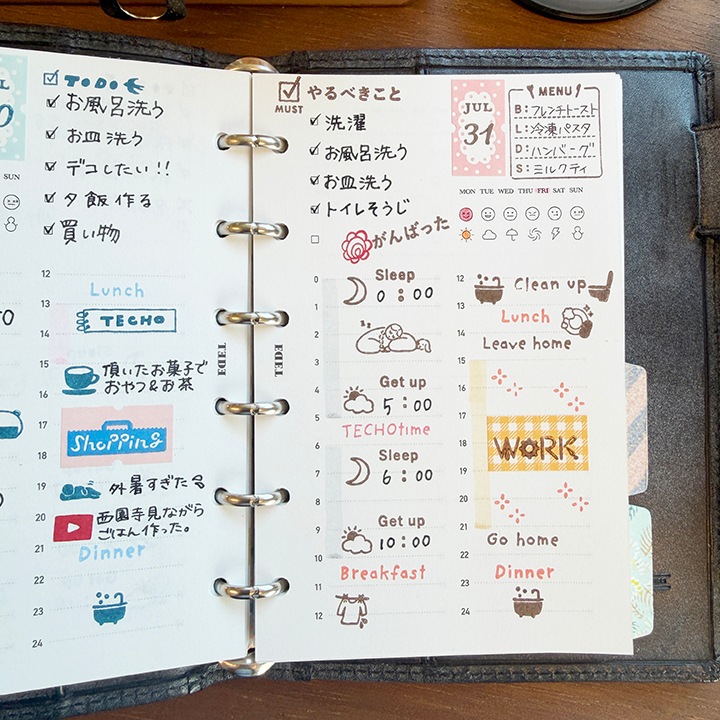 TODO
お風呂洗う
お皿洗う
デコしたい!!
夕飯作る
買い物
SUN
12
Lunch
13
TECHO
14
15
頂いたお菓子で
おやつ&お茶
16
17
Shopping
18
19
外暑すぎた
20
西園寺見ながら
ごはん作った。
21
Dinner
22
23
24
TDE
MUST
やるべきこと
洗濯
お風呂洗う
お皿洗う
トイレそうじ
がんばった
JUL
31
MENU
B: フレンチトースト
L: 冷凍パスタ
D: ハンバーグ
S: ミルクティ
MON TUE WED THU FRI SAT SUN
TDE
0
Sleep
0:00
1
2
3
4
Get up
5:00
5
TECHOtime
6
Sleep
7
6:00
8
9
Get up
10:00
10
Breakfast
11
12
12
Clean up
13
Lunch
14
Leave home
15
16
17
18
WORK
19
20
21
Go home
22
Dinner
23
24